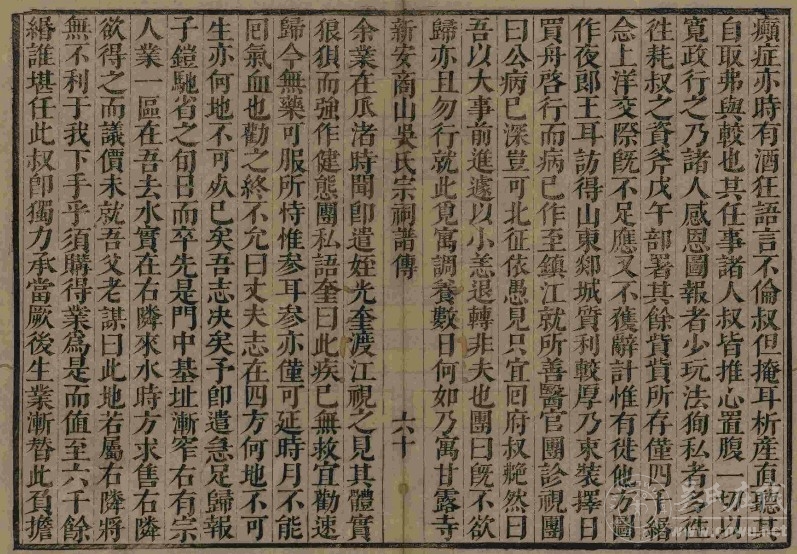 癲症亦時有酒狂語言不倫叔但掩耳析產直聽其
自取弗與較也其任事諸人叔皆推心置腹一切以
寬政行之乃諸人感恩圖報者少玩法狥私者多徃
徃耗叔之資斧戊午部署其餘貲貲所存僅四千緡
念上洋交際旣不足應又不獲辭計惟有徙他方圖
作夜郎王耳訪得山東郯城質利較厚乃束裝擇日
買舟啓行而病已作至鎮江就所善醫官團診視團
曰公病已深豈可北征依愚見只宜回府叔艴然曰
吾以大事前進遽以小恙退轉非夫也團曰旣不欲
歸亦且勿行就此覓寓調養數日何如乃寓甘露寺
新安商山吳氏宗祠譜傳
六十
余業在瓜渚時聞卽遣姪光奎渡江視之見其體實
狼狽而強作健態團私語奎曰此疾已無救宜勸速
歸今無藥可服所恃惟參耳參亦僅可延時月不能
囘氣血也勸之終不允曰丈夫志在四方何地不可
生亦何地不可死已矣吾志决矣予卽遣急足歸報
子鎧馳省之旬日而卒先是門中基址漸窄右有宗
人業一區在吾去水實在右隣來水時方求售右隣
欲得之而議價未就吾父老謀曰此地若屬右隣將
無不利于我下手乎須購得業爲是而值至六千餘
緡誰堪任此叔卽獨力承當厥後生業漸替此負擔